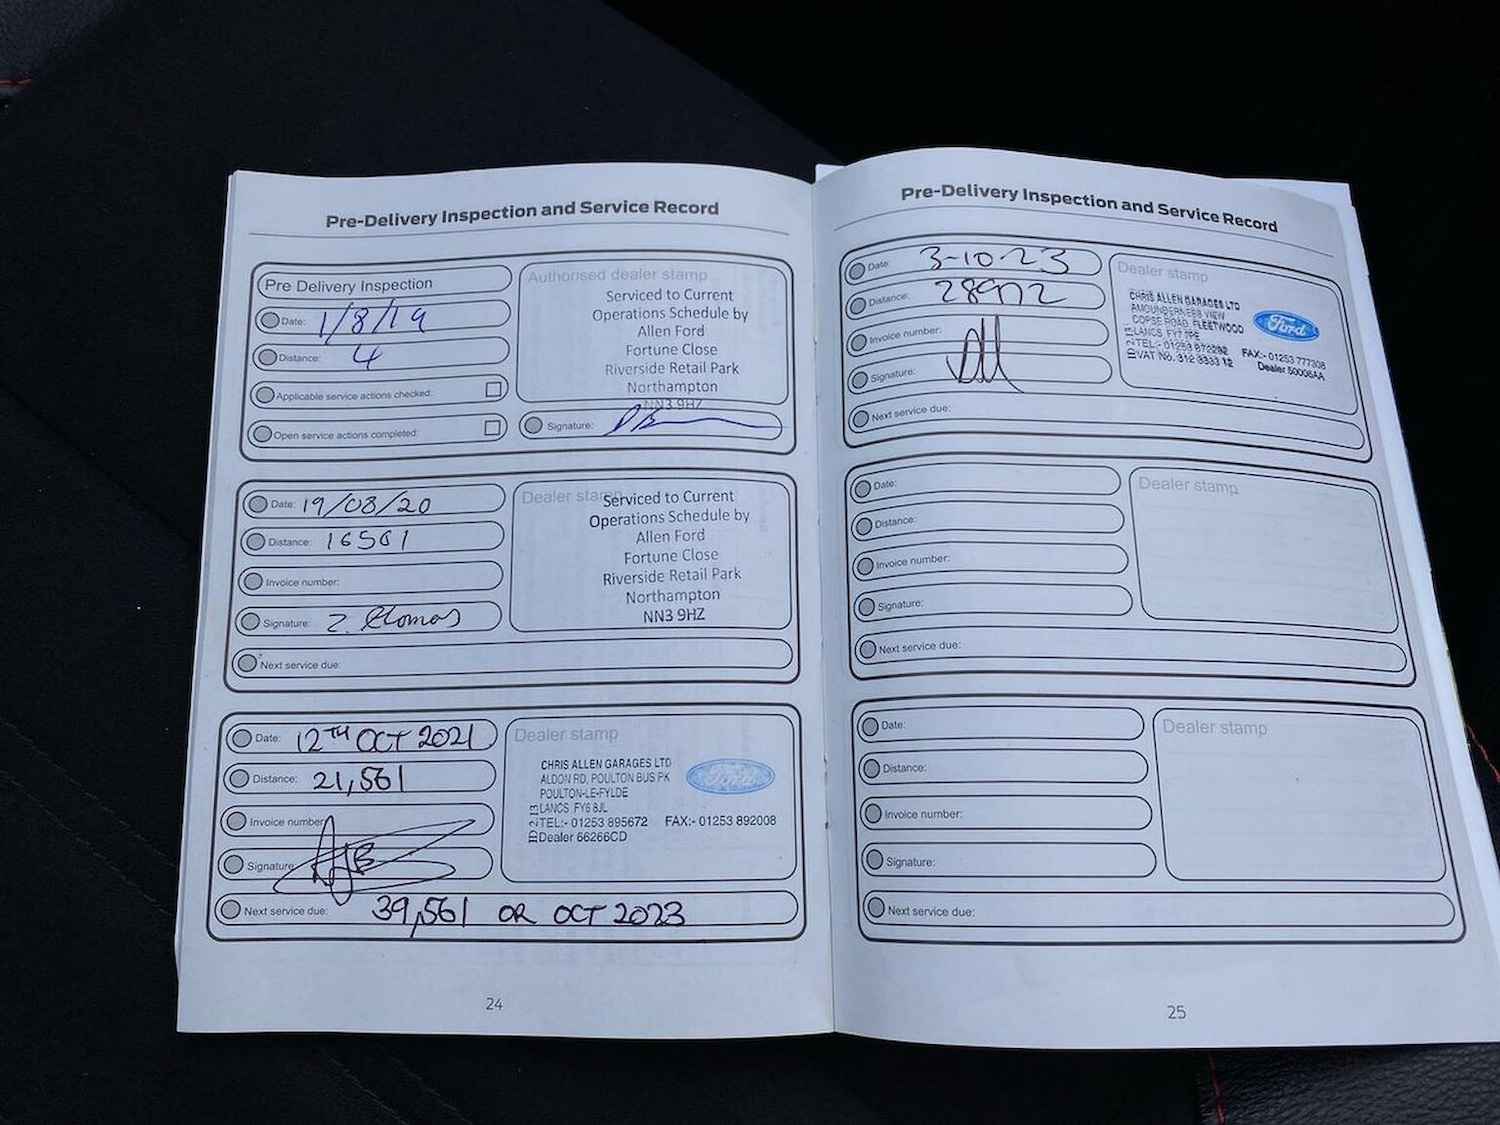 Pre-Delivery Inspection and Service Record
Pre Delivery Inspection
Date: 1/8/19
Distance: 4
Applicable service actions checked:
Open service actions completed:
Authorised dealer stamp
Serviced to Current
Operations Schedule by
Allen Ford
Fortune Close
Riverside Retail Park
Northampton
NN3 9HZ
Signature:
Date: 19/08/20
Distance: 16561
Invoice number:
Signature: Z. Thomas
Next service due:
Dealer stamp
Serviced to Current
Operations Schedule by
Allen Ford
Fortune Close
Riverside Retail Park
Northampton
NN3 9HZ
Date: 12TH OCT 2021
Distance: 21,561
Invoice number:
Signature:
Next service due: 39,561 OR OCT 2023
Dealer stamp
CHRIS ALLEN GARAGES LTD
ALDON RD, POULTON BUS PK
POULTON-LE-FYLDE
LANCS FY6 8JL
TEL:- 01253 895672 FAX:- 01253 892008
Dealer 66266CD
Ford
24
Pre-Delivery Inspection and Service Record
Date: 3-10-23
Distance: 28972
Invoice number:
Signature:
Next service due:
Dealer stamp
CHRIS ALLEN GARAGES LTD
AMOUNDERNESS VIEW
COPSE ROAD, FLEETWOOD
LANCS FY7 7PE
TEL:- 01253 872292 FAX:- 01253 777308
VAT No. 312 3333 12 Dealer 50006AA
Ford
Date:
Distance:
Invoice number:
Signature:
Next service due:
Dealer stamp
Date:
Distance:
Invoice number:
Signature:
Next service due:
Dealer stamp
25